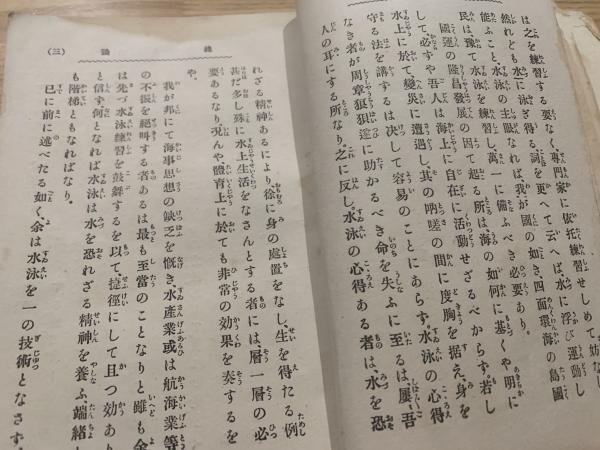 は之を練習する要なく、專門家に依托練習せしめて妨なし
然れども水に泳ぎ得る、詞を更へて云へば、水に浮び運動し
能ふこと、水泳の主眼なれば、我が國の如き、四面環海の島國
民は、豫て水泳を練習し、萬一に備ふべき必要あり。
國運の隆昌發展の因て起る所は海の如何に基くや明に
して、必ずや吾人は海上に自在に活動せざるべからず。若し
水上に於て變災に遭遇し、其の吶嗟の間に度胸を据え、身を
守る法を講するは決して容易のことにあらず。水泳の心得
なき者が周章狼狽、遂に助かるべき命を失ふに至るは、屢吾
人の耳にする所なり。之に反し、水泳の心得ある者は、水を恐
緒論
(三)
れざる精神あるにより、徐に身の處置をなし、生を得たる例
甚だ多し、殊に水上生活をなさんとする者には、層一層の必
要あるなり。況んや體育上に於ても非常の効果を奏するを
や。
我が邦にて海事思想の缺乏を慨き、水產業或は航海業等
の不振を絕叫する者あるは、最も至當のことなりと雖も、余
は先づ水泳練習を鼓舞するを以て捷徑にして且つ効あり
と信ず。何となれば水泳は水を恐れざる精神を養ふ、端緒し
も階梯ともなればなり。
已に前に述べたる如く、余は水泳を一の技術となさず